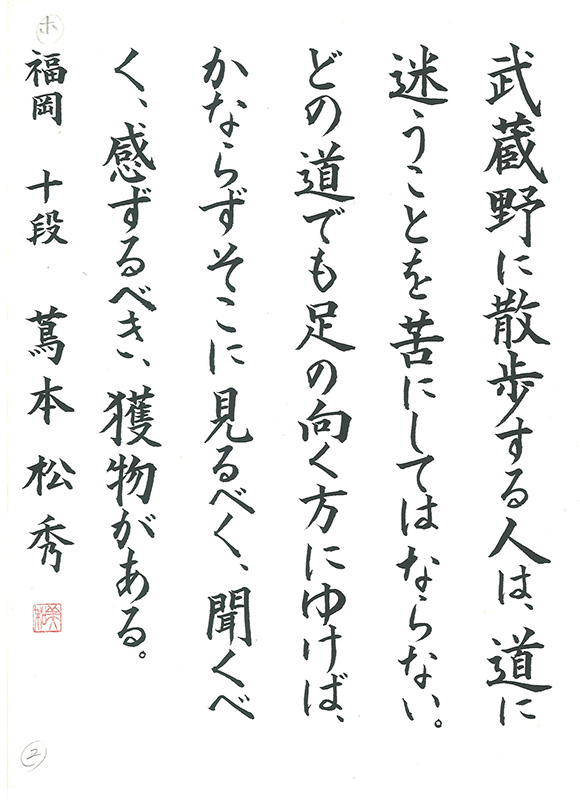 武蔵野に散歩する人は、道に
迷うことを苦にしてはならない。
どの道でも足の向く方にゆけば、
かならずそこに見るべく、聞くべ
く、感ずるべき、獲物がある。
福岡 十段 蔦本松秀
ホ
2